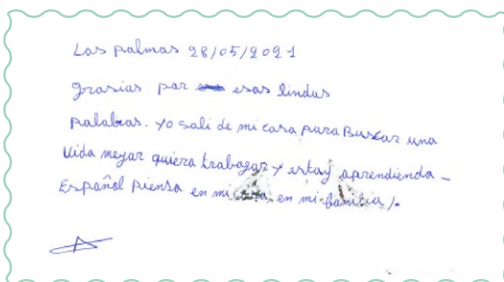 Las palmas 28/05/2021
grasias par esas lindas
palabras. yo sali de mi casa para Buscar una
vida meyar quiera trabagar y estay aprendienda -
Español piensa en mi casa, en mi familia /.